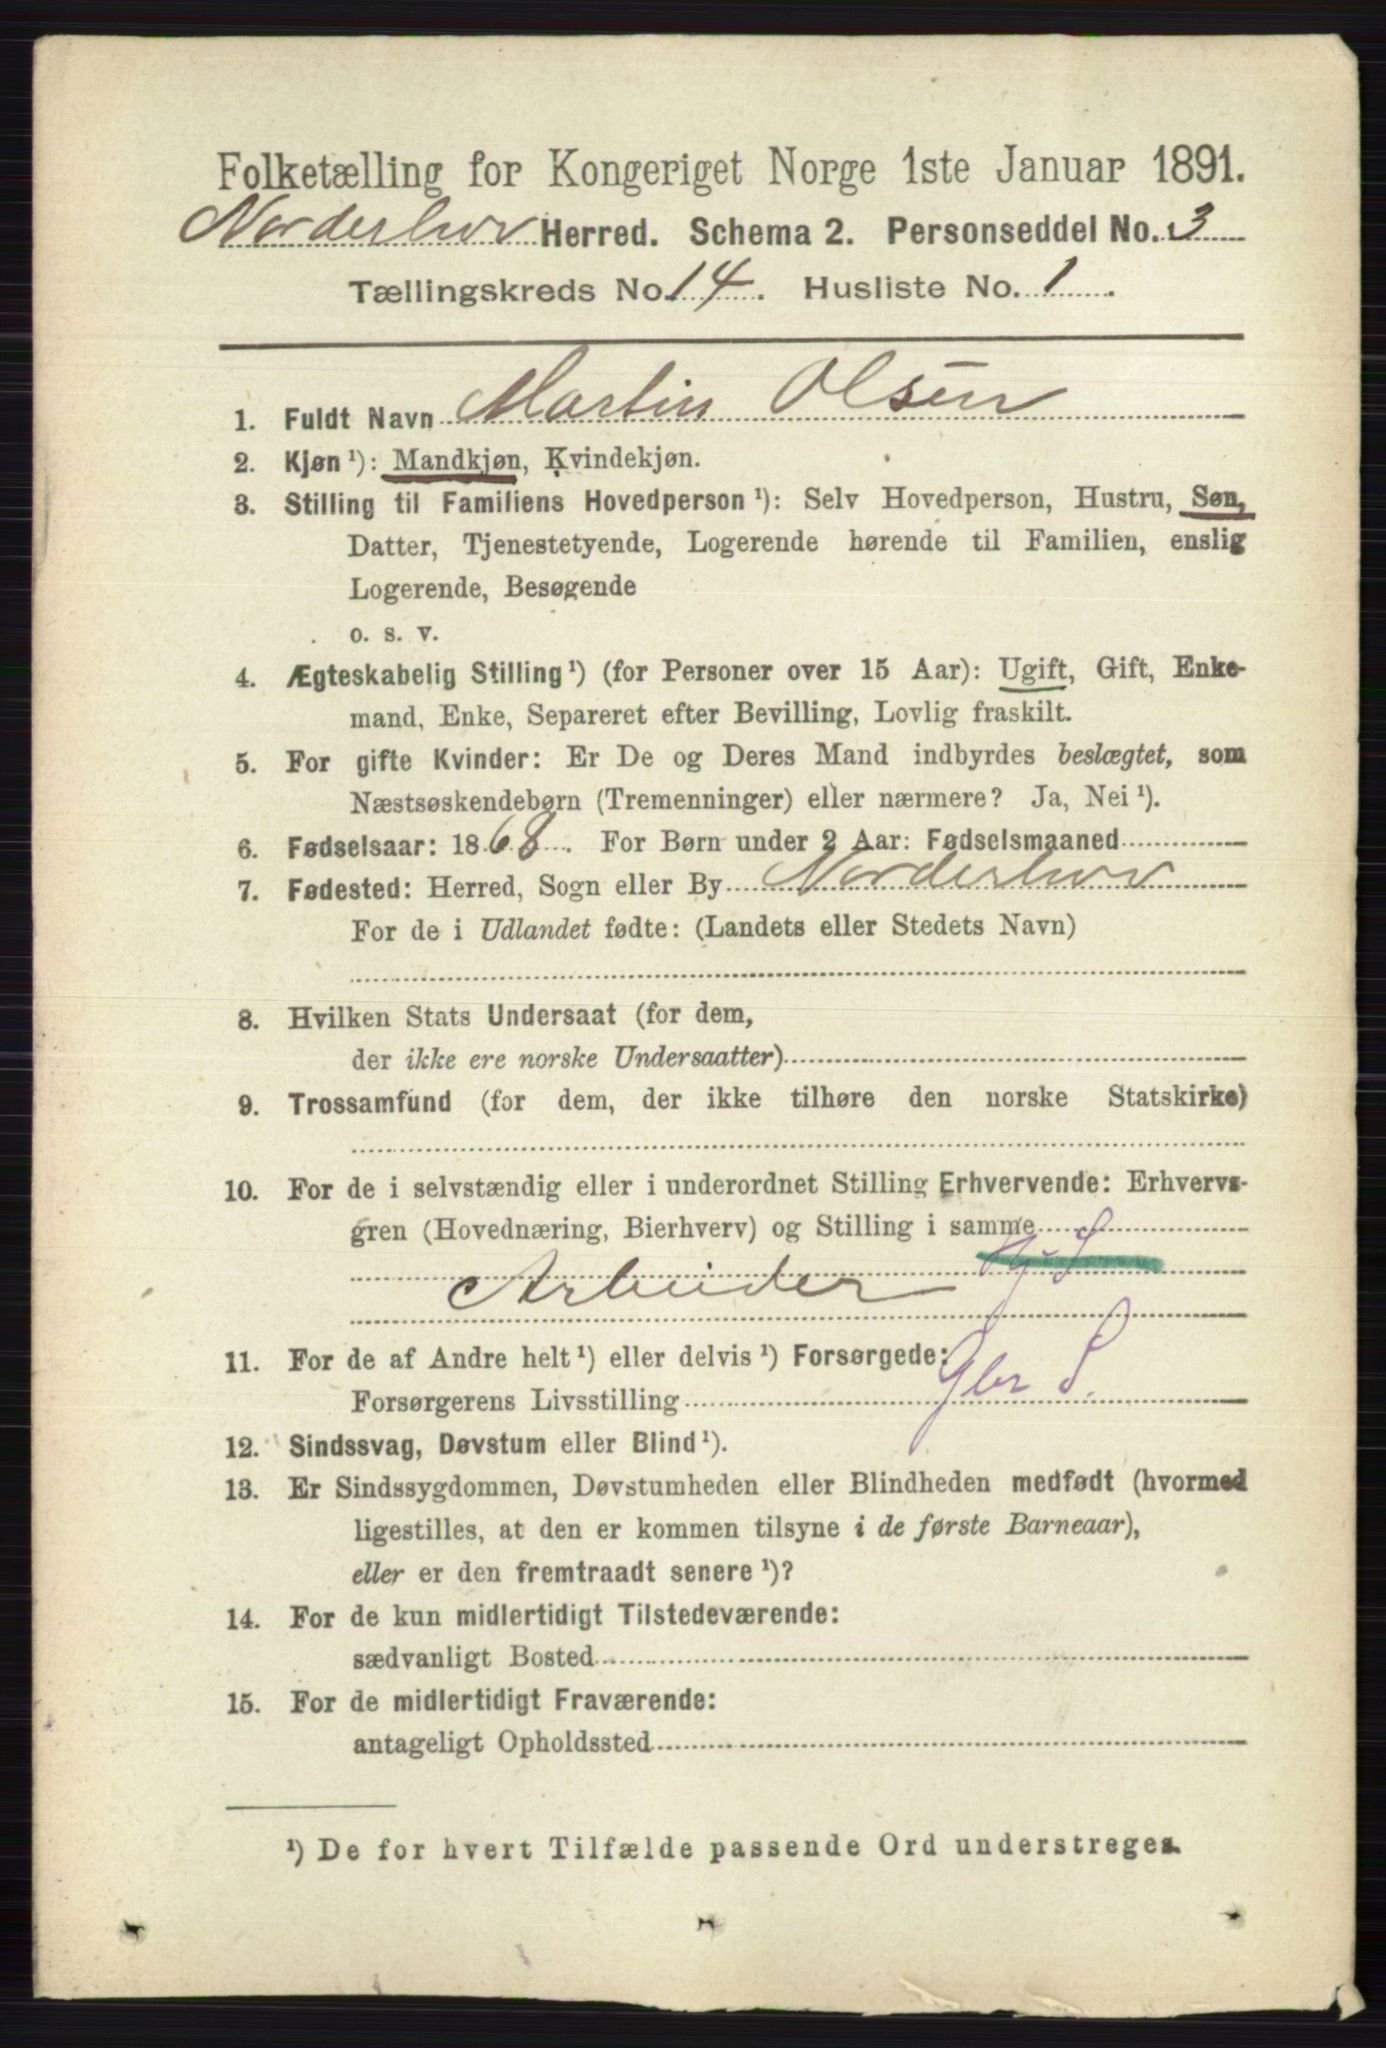 Folketælling for Kongeriget Norge 1ste Januar 1891.
Norderhov Herred. Schema 2. Personseddel No. 3
Tællingskreds No. 14. Husliste No. 1.
1. Fuldt Navn Martin Olsen
2. Kjøn ¹): Mandkjøn, Kvindekjøn.
3. Stilling til Familiens Hovedperson ¹): Selv Hovedperson, Hustru, Søn,
Datter, Tjenestetyende, Logerende hørende til Familien, enslig
Logerende, Besøgende
o. s. v.
4. Ægteskabelig Stilling ¹) (for Personer over 15 Aar): Ugift, Gift, Enke-
mand, Enke, Separeret efter Bevilling, Lovlig fraskilt.
5. For gifte Kvinder: Er De og Deres Mand indbyrdes beslægtet, som
Næstsøskendebørn (Tremenninger) eller nærmere? Ja, Nei ¹).
6. Fødselsaar: 1868. For Børn under 2 Aar: Fødselsmaaned
7. Fødested: Herred, Sogn eller By Norderhov
For de i Udlandet fødte: (Landets eller Stedets Navn)
8. Hvilken Stats Undersaat (for dem,
der ikke ere norske Undersaatter)
9. Trossamfund (for dem, der ikke tilhøre den norske Statskirke)
10. For de i selvstændig eller i underordnet Stilling Erhvervende: Erhvervs-
gren (Hovednæring, Bierhverv) og Stilling i samme
Arbeider
11. For de af Andre helt ¹) eller delvis ¹) Forsørgede:
Forsørgerens Livsstilling Gbr S.
12. Sindssvag, Døvstum eller Blind ¹).
13. Er Sindssygdommen, Døvstumheden eller Blindheden medfødt (hvormed
ligestilles, at den er kommen tilsyne i de første Barneaar),
eller er den fremtraadt senere ¹)?
14. For de kun midlertidigt Tilstedeværende:
sædvanligt Bosted
15. For de midlertidigt Fraværende:
antageligt Opholdssted
¹) De for hvert Tilfælde passende Ord understreges.